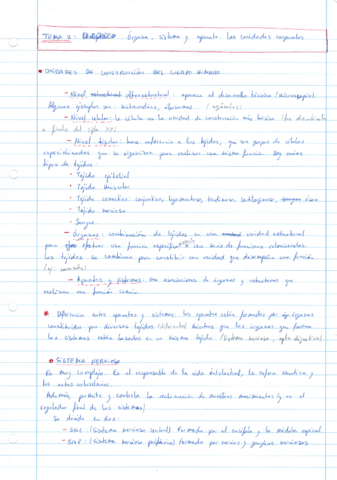 TEMA 1: Órgano, sistema y aparato. Las cavidades corporales.
• UNIDADES DE CONSTRUCCIÓN DEL CUERPO HUMANO
- Nivel ultraestructural: aparece al desarrollo técnico (microscopio)
Algunos ejemplos son: mitocondrias, ribosomas... (orgánulos)
- Nivel celular: la célula es la unidad de construcción más básica (las descubierta
a finales del siglo XIX)
- Nivel tisular: hace referencia a los tejidos, que son grupos de células
especializadas que se organizan para realizar una misma función. Hay varios
tipos de tejidos:
• Tejido epitelial
• Tejido muscular
• Tejido conectivo: conjuntivo, ligamentoso, tendinoso, cartilaginoso, óseo
• Tejido nervioso
• Sangre
- Órganos: combinación de tejidos en una unidad estructural
para efectuar una función específica o una serie de funciones relacionadas.
Los tejidos se combinan para constituir una unidad que desempeña una función
(ej: corazón)
- Aparatos y sistemas: son asociaciones de órganos y estructuras que
realizan una función común
* Diferencia entre aparatos y sistemas: Los aparatos están formados por órganos
constituidos por diversos tejidos (diferentes) mientras que los órganos que forman
los sistemas están basados en un mismo tejido (sistema nervioso, apto digestivo)
• SISTEMA NERVIOSO
Es muy complejo. Es el responsable de la vida intelectual, la esfera emotiva y
los actos voluntarios.
Además permite y controla la realización de nuestros movimientos (y es el
regulador final de los sistemas)
Se divide en dos:
- SNC: (Sistema nervioso central) Formado por el encéfalo y la médula espinal.
- SNP: (Sistema nervioso periférico) formado por nervios y ganglios nerviosos